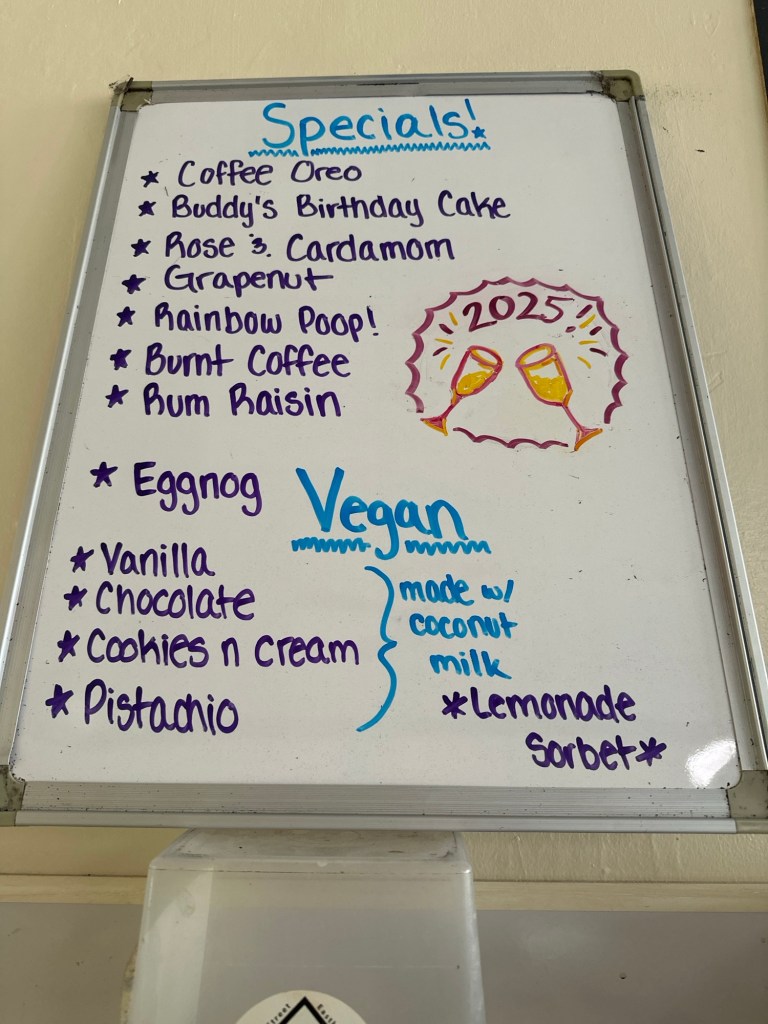 Specials!
* Coffee Oreo
* Buddy's Birthday Cake
* Rose & Cardamom
* Grapenut
* Rainbow Poop!
* Burnt Coffee
* Rum Raisin
2025!
* Eggnog
Vegan
* Vanilla
* Chocolate
* Cookies n cream
* Pistachio
made w/
coconut
milk
*Lemonade
Sorbet*